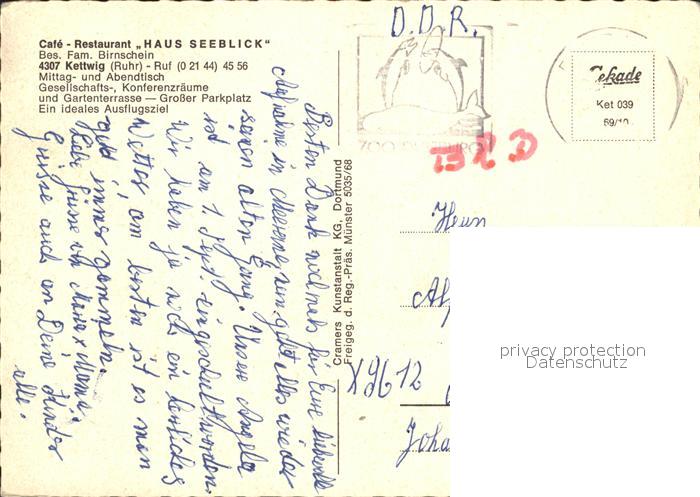 Café - Restaurant „HAUS SEEBLICK"
Bes. Fam. Birnschein
4307 Kettwig (Ruhr) - Ruf (0 21 44) 45 56
Mittag- und Abendtisch
Gesellschafts-, Konferenzräume
und Gartenterrasse — Großer Parkplatz
Ein ideales Ausflugsziel
D.D.R.
ZOO DUISBURG
Cekade
Ket 039
69/10
BRD
Besten Dank nochmals für Eure liebevolle
Aufnahme in Meerane, nun geht alles wieder
seinen alten Gang. Unsere Angela
ist am 1. Sept. eingeschult worden.
Wir haben ja noch ein herrliches
Wetter, am besten ist es man
geht immer
Liebe Grüsse von Maria x Mama
Grüsse auch an Deine Kinder
alle.
Cramers Kunstanstalt KG, Dortmund
Freigeg. d. Reg.-Präs. Münster 5035/68
X 9612
Joha
privacy protection
Datenschutz